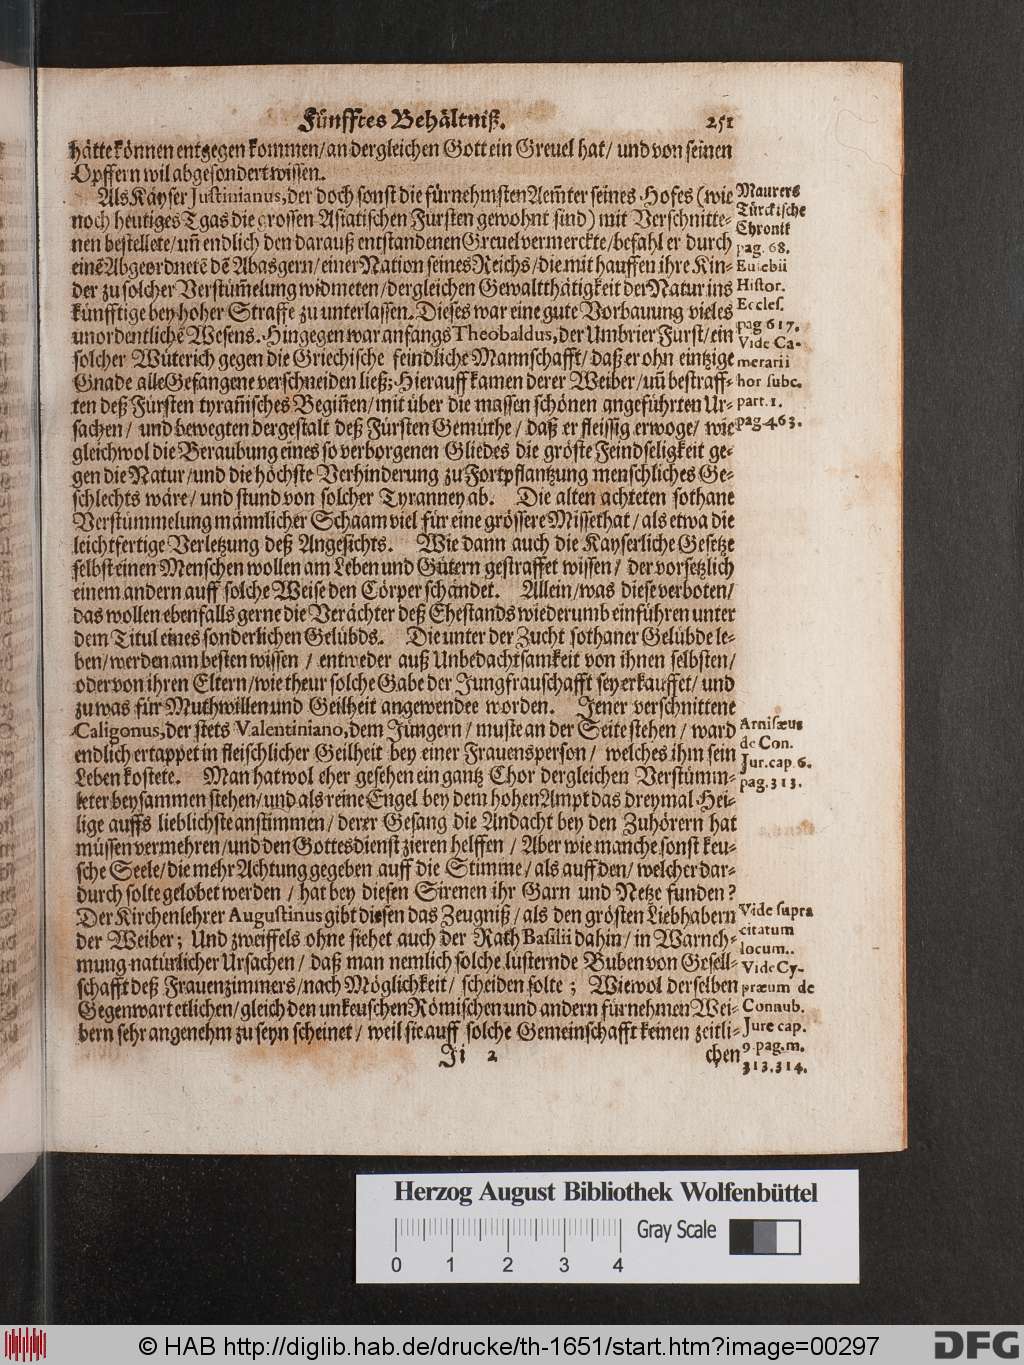 Fünfftes Behältniß. 251
hätte können entgegen kommen/ an dergleichen Gott ein Greuel hat/ und von seinen
Opffern wil abgesondert wissen.
Als Käyser Justinianus, der doch sonst die fürnehmsten Aem̃ter seines Hofes (wie
noch heutiges Tgas die grossen Asiatischen Fürsten gewohnt sind) mit Verschnitte-
nen bestellete/ uñ endlich den darauß entstandenen Greuel vermerckte/ befahl er durch
einẽ Abgeordnetẽ dẽ Abasgern/ einer Nation seines Reichs/ die mit hauffen ihre Kin-
der zu solcher Verstüm̃elung widmeten/ dergleichen Gewaltthätigkeit der Natur ins
künfftige bey hoher Straffe zu unterlassen. Dieses war eine gute Vorbauung vieles
unordentlichẽ Wesens. Hingegen war anfangs Theobaldus, der Umbrier Fürst/ ein
solcher Wüterich gegen die Griechische feindliche Mannschafft/ daß er ohn eintzige
Gnade alle Gefangene verschneiden ließ; Hierauff kamen derer Weiber/ uñ bestraff-
ten deß Fürsten tyrañisches Begiñen/ mit über die massen schönen angeführten Ur-
sachen/ und bewegten dergestalt deß Fürsten Gemüthe/ daß er fleissig erwoge/ wie
gleichwol die Beraubung eines so verborgenen Gliedes die gröste Feindseligkeit ge-
gen die Natur/ und die höchste Verhinderung zu Fortpflantzung menschliches Ge-
schlechts wäre/ und stund von solcher Tyranney ab. Die alten achteten sothane
Verstümmelung männlicher Schaam viel für eine grössere Missethat/ als etwa die
leichtfertige Verletzung deß Angesichts. Wie dann auch die Kayserliche Gesetze
selbst einen Menschen wollen am Leben und Gütern gestraffet wissen/ der vorsetzlich
einem andern auff solche Weise den Cörper schändet. Allein/ was diese verboten/
das wollen ebenfalls gerne die Verächter deß Ehestands wiederumb einführen unter
dem Titul eines sonderlichen Gelübds. Die unter der Zucht sothaner Gelübde le-
ben/ werden am besten wissen / entweder auß Unbedachtsamkeit von ihnen selbsten/
oder von ihren Eltern/ wie theur solche Gabe der Jungfrauschafft sey erkauffet/ und
zu was für Muthwillen und Geilheit angewendee worden. Jener verschnittene
Caligonus, der stets Valentiniano, dem Jüngern/ muste an der Seite stehen/ ward
endlich ertappet in fleischlicher Geilheit bey einer Frauensperson/ welches ihm sein
Leben kostete. Man hat wol eher gesehen ein gantz Chor dergleichen Verstümm-
leter beysammen stehen/ und als reine Engel bey dem hohen Ampt das dreymal Hei-
lige auffs lieblichste anstimmen/ derer Gesang die Andacht bey den Zuhörern hat
müssen vermehren/ und den Gottesdienst zieren helffen/ Aber wie manche sonst keu-
sche Seele/ die mehr Achtung gegeben auff die Stimme/ als auff den/ welcher dar-
durch solte gelobet werden / hat bey diesen Sirenen ihr Garn und Netze funden?
Der Kirchenlehrer Augustinus gibt diesen das Zeugniß/ als den grösten Liebhabern
der Weiber; Und zweiffels ohne siehet auch der Rath Basilii dahin/ in Warneh-
mung natürlicher Ursachen/ daß man nemlich solche lüsternde Buben von Gesell-
schafft deß Frauenzimmers/ nach Möglichkeit/ scheiden solte; Wiewol derselben
Gegenwart etlichen/ gleich den unkeuschen Römischen und andern fürnehmen Wei-
bern sehr angenehm zu seyn scheinet/ weil sie auff solche Gemeinschafft keinen zeitli-
Ji 2 chen
Maurers
Türckische
Chronik
pag. 68.
Eusebii
Histor.
Eccles.
pag 617.
Vide Ca-
merarii
hor subc.
part. 1.
pag. 463.
Arnisæus
de Con.
Jur. cap. 6.
pag. 313.
Vide supra
citatum
locum..
Vide Cy-
præum de
Connub.
Jure cap.
9. pag. m.
313. 314.
Herzog August Bibliothek Wolfenbüttel
Gray Scale
0 1 2 3 4
© HAB http://diglib.hab.de/drucke/th-1651/start.htm?image=00297
DFG